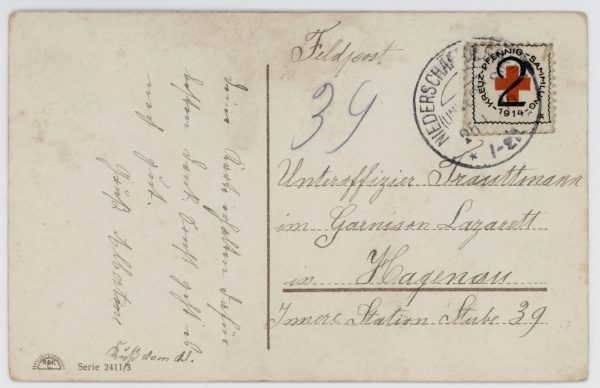 Feldpost
39
NIEDERSCHÄF
2
KREUZ-PFENNIG-SAMMLUNG
1914
Unteroffizier Trauttmann
im Garnison Lazarett
in Hagenau
Innere Station Stube 39
Deine Karte erhalten dafür
besten Dank. Sonst geht es
noch gut.
Gruß Albertine
Gruß vom
Serie 2411/3